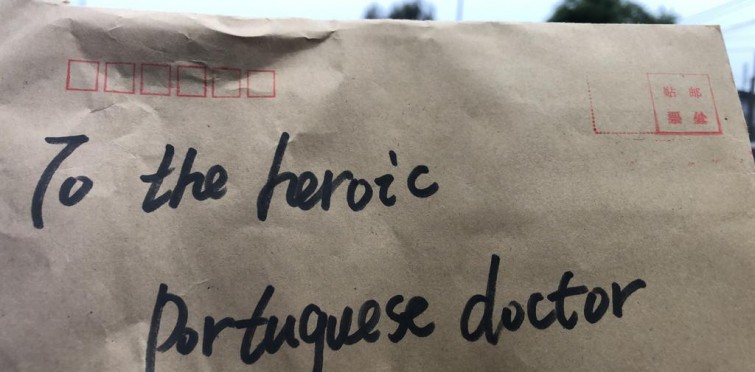 贴 邮
票 处
To the heroic
Portuguese doctor